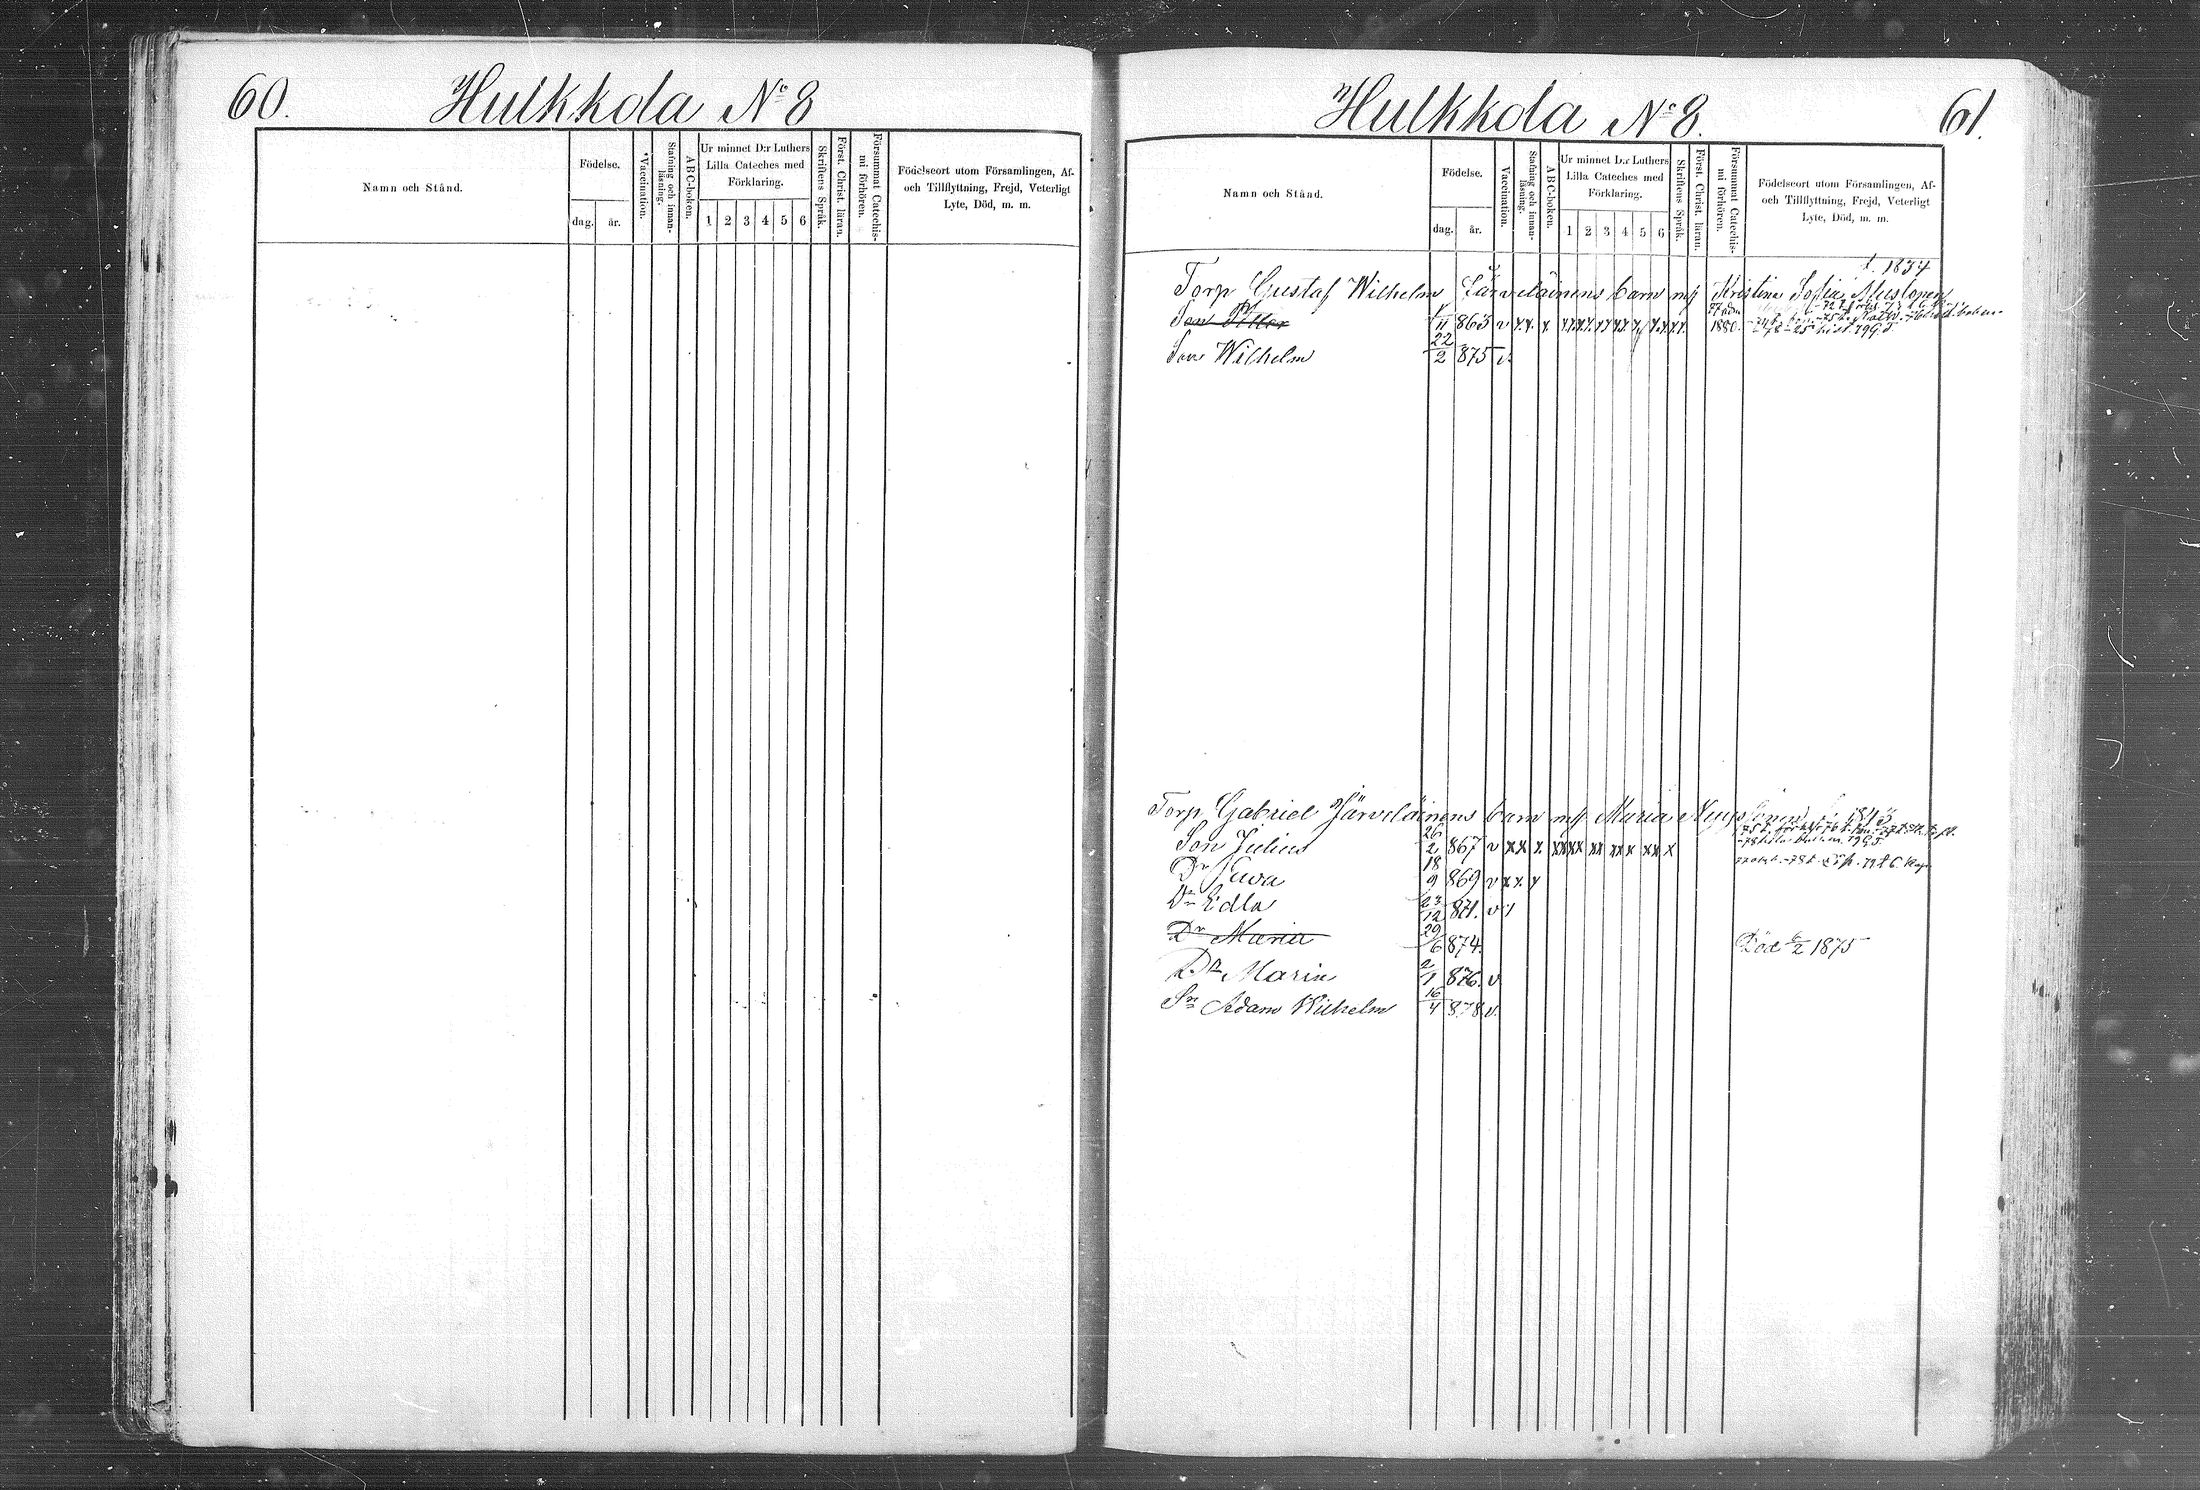 60.
Hulkkola No 8
Namn och Stånd.
Födelse.
dag.
år.
Vaccination.
Stafning och innan-
läsning.
ABC-boken.
Ur minnet D:r Luthers
Lilla Cateches med
Förklaring.
1 2 3 4 5 6
Skriftens Språk.
Först. Christ. läran.
Försummat Catechis-
mi förhören.
Födelseort utom Församlingen, Af-
och Tillflyttning, Frejd, Veterligt
Lyte, Död, m. m.
Hulkkola No 8.
61.
Namn och Stånd.
Födelse.
dag.
år.
Vaccination.
Stafning och innan-
läsning.
ABC-boken.
Ur minnet D:r Luthers
Lilla Cateches med
Förklaring.
1 2 3 4 5 6
Skriftens Språk.
Först. Christ. läran.
Försummat Catechis-
mi förhören.
Födelseort utom Församlingen, Af-
och Tillflyttning, Frejd, Veterligt
Lyte, Död, m. m.
f. 1834
Torp Gustaf Wilhelm Järveläinens barn m/ Kristina Sofia
Son Petter 1/11 863 v 1880
Son Wilhelm 22/2 875 v.
Torp Gabriel Järveläinens barn m/ Maria 1843
Son Julius 26/2 867 v x x x x x x x x x x x x x x
Dr Ewa 18/9 869 v x x x
Dr Edla 23/12 871. v
Dr Maria 29/6 874. Död 6/2 1875
Dr Maria 2/1 876. v
Sn Adam Wilhelm 16/4 878. v.